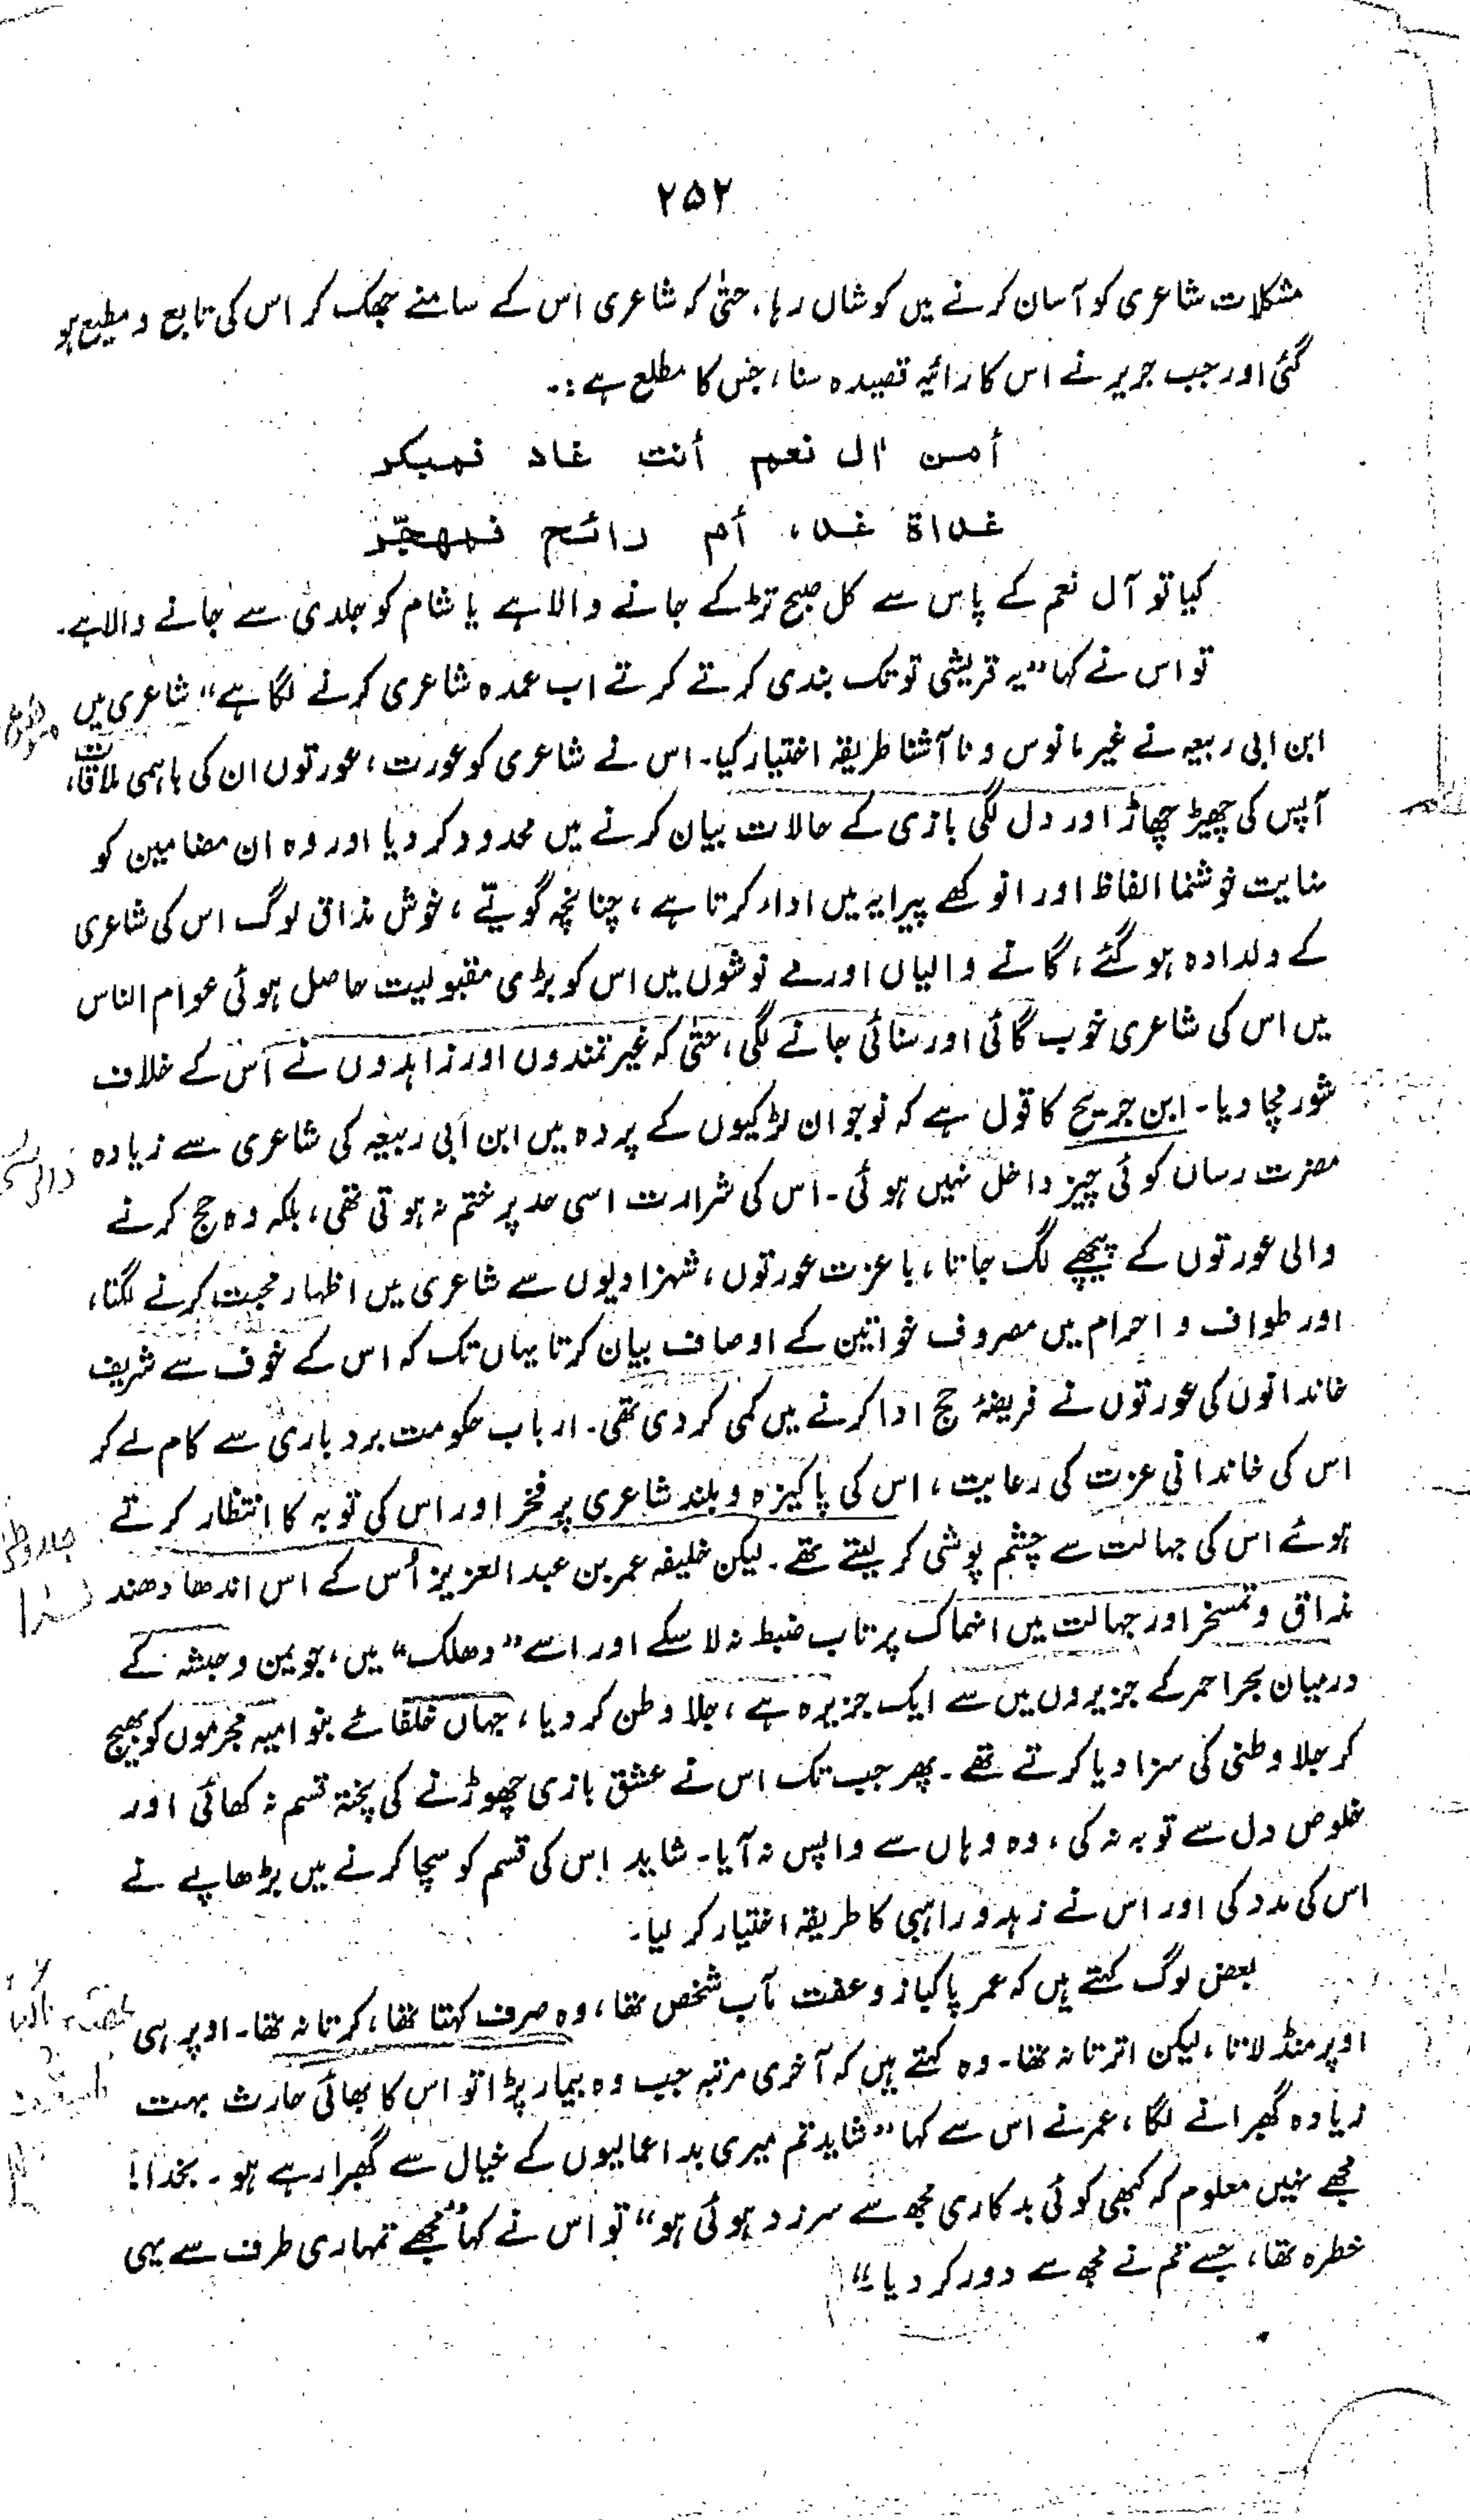 ۲۵۲
مشکلات شاعری کو آسان کرنے میں کوشاں رہا، حتٰی کہ شاعری اس کے سامنے جھک کر اس کی تابع و مطیع ہو
گئی اور جب جریر نے اس کا رائیہ قصیدہ سنا، جس کا مطلع ہے:۔
أمن اٰل نعم أنت غاد فمبکر
غداة غد، أم رائح فمهجّر
کیا تو آل نعم کے پاس سے کل صبح تڑکے جانے والا ہے یا شام کو جلدی سے جانے والا ہے۔
تو اس نے کہا ”یہ قریشی تو تک بندی کرتے کرتے اب عمدہ شاعری کرنے لگا ہے“ شاعری میں
ابن ابی ربیعہ نے غیر مانوس و نا آشنا طریقہ اختیار کیا۔ اس نے شاعری کو عورت، عورتوں ان کی باہمی ملاقات،
آپس کی چھیڑ چھاڑ اور دل لگی بازی کے حالات بیان کرنے میں محدود کر دیا اور وہ ان مضامین کو
نہایت خوشنما الفاظ اور انوکھے پیرایہ میں ادا کرتا ہے، چنانچہ گویّے، خوش مذاق لوگ اس کی شاعری
کے دلدادہ ہو گئے، گانے والیاں اور مے نوشوں میں اس کو بڑی مقبولیت حاصل ہوئی عوام الناس
میں اس کی شاعری خوب گائی اور سنائی جانے لگی، حتٰی کہ غیرتمندوں اور زاہدوں نے اس کے خلاف
شور مچا دیا۔ ابن جریج کا قول ہے کہ نوجوان لڑکیوں کے پردہ میں ابن ابی ربیعہ کی شاعری سے زیادہ
مضرت رساں کوئی چیز داخل نہیں ہوئی۔ اس کی شرارت اسی حد پر ختم نہ ہوتی تھی، بلکہ وہ حج کرنے
والی عورتوں کے پیچھے لگ جاتا، با عزت عورتوں، شہزادیوں سے شاعری میں اظہار محبت کرنے لگتا،
اور طواف و احرام میں مصروف خواتین کے اوصاف بیان کرتا یہاں تک کہ اس کے خوف سے شریف
خاندانوں کی عورتوں نے فریضۂ حج ادا کرنے میں کمی کر دی تھی۔ ارباب حکومت بردباری سے کام لے کر
اس کی خاندانی عزت کی رعایت، اس کی پاکیزہ و بلند شاعری پر فخر اور اس کی توبہ کا انتظار کرتے
ہوئے اس کی جہالت سے چشم پوشی کر لیتے تھے۔ لیکن خلیفہ عمر بن عبد العزیز اُس کے اس اندھا دھند
مذاق و تمسخر اور جہالت میں انہماک پر تاب ضبط نہ لا سکے اور اسے ”دھلک“ میں، جو یمن و حبشہ کے
درمیان بحر احمر کے جزیروں میں سے ایک جزیرہ ہے، جلا وطن کر دیا، جہاں خلفائے بنو امیہ مجرموں کو بھیج
کر جلا وطنی کی سزا دیا کرتے تھے۔ پھر جب تک اس نے عشق بازی چھوڑنے کی پختہ قسم نہ کھائی اور
خلوص دل سے توبہ نہ کی، وہ وہاں سے واپس نہ آیا۔ شاید اس کی قسم کو سچا کرنے میں بڑھاپے نے
اس کی مدد کی اور اس نے زہد و راہبی کا طریقہ اختیار کر لیا۔
بعض لوگ کہتے ہیں کہ عمر پاکباز و عفت مآب شخص تھا، وہ صرف کہتا تھا، کرتا نہ تھا۔ اوپر ہی
اوپر منڈلاتا، لیکن اترتا نہ تھا۔ وہ کہتے ہیں کہ آخری مرتبہ جب وہ بیمار پڑا تو اس کا بھائی حارث بہت
زیادہ گھبرانے لگا، عمر نے اس سے کہا ”شاید تم میری بد اعمالیوں کے خیال سے گھبرا رہے ہو۔ بخدا!
مجھے نہیں معلوم کہ کبھی کوئی بدکاری مجھ سے سرزد ہوئی ہو“ تو اس نے کہا ”مجھے تمہاری طرف سے یہی
خطرہ تھا، جسے تم نے مجھ سے دور کر دیا۔“
جلا وطنی
سزا